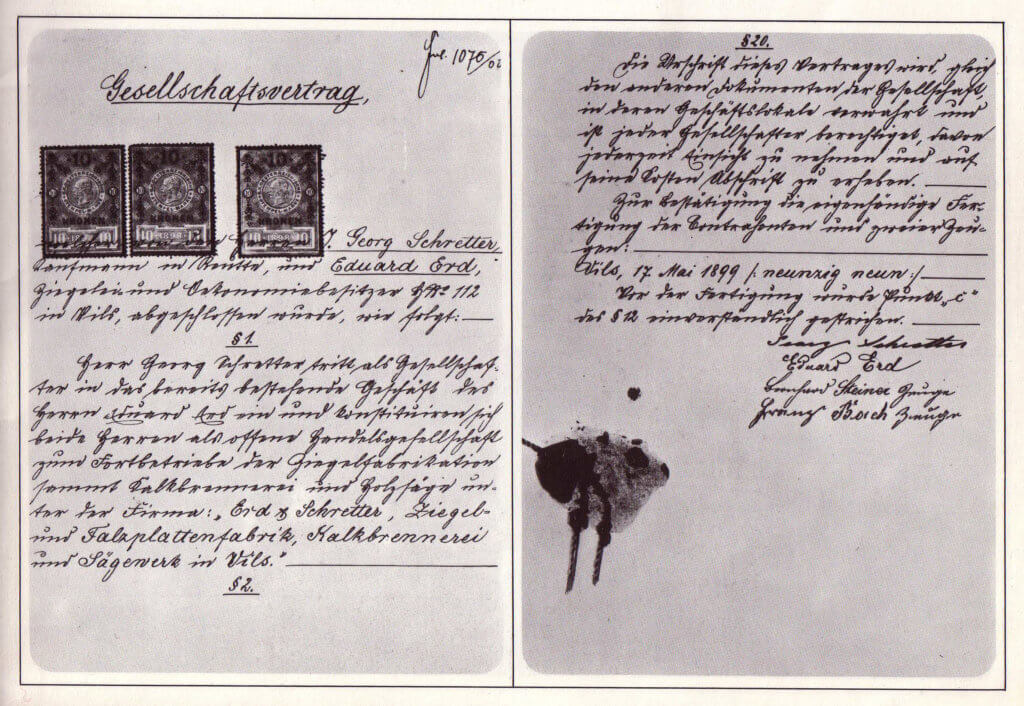 Jul. 1075/02
Gesellschaftsvertrag,
10
10
10
KRONEN
KRONEN
KRONEN
10 1898 10
10 1898 10
10 1898 10
J. Georg Schretter,
Kaufmann in Reutte, und Eduard Erd,
Ziegelei- und Oekonomiebesitzer HNo 112
in Vils, abgeschlossen wurde, wie folgt:
§ 1.
Herr Georg Schretter tritt als Gesellschaf-
ter in das bereits bestehende Geschäft des
Herrn Eduard Erd ein und konstituiren sich
beide Herren als offene Handelsgesellschaft
zum Fortbetriebe der Ziegelfabrikation
sammt Kalkbrennerei und Holzsäge un-
ter der Firma: „Erd & Schretter, Ziegel-
und Falzplattenfabrik, Kalkbrennerei
und Sägewerk in Vils."
§ 2.
§ 20.
Die Urschrift dieses Vertrages wird, gleich
den anderen Dokumenten der Gesellschaft,
in deren Geschäftslokale verwahrt und
ist jeder Gesellschafter berechtiget, davon
jederzeit Einsicht zu nehmen und auf
seine Kosten Abschrift zu erheben.
Zur Bestätigung die eigenhändige Fer-
tigung der Contrahenten und zweier Zeu-
gen:
Vils, 17. Mai 1899 /: neunzig neun :/
Vor der Fertigung wurde Punkt „c"
des § 12 einverständlich gestrichen.
Georg Schretter
Eduard Erd
Leonhard Steiner Zeuge
Franz Zeuge